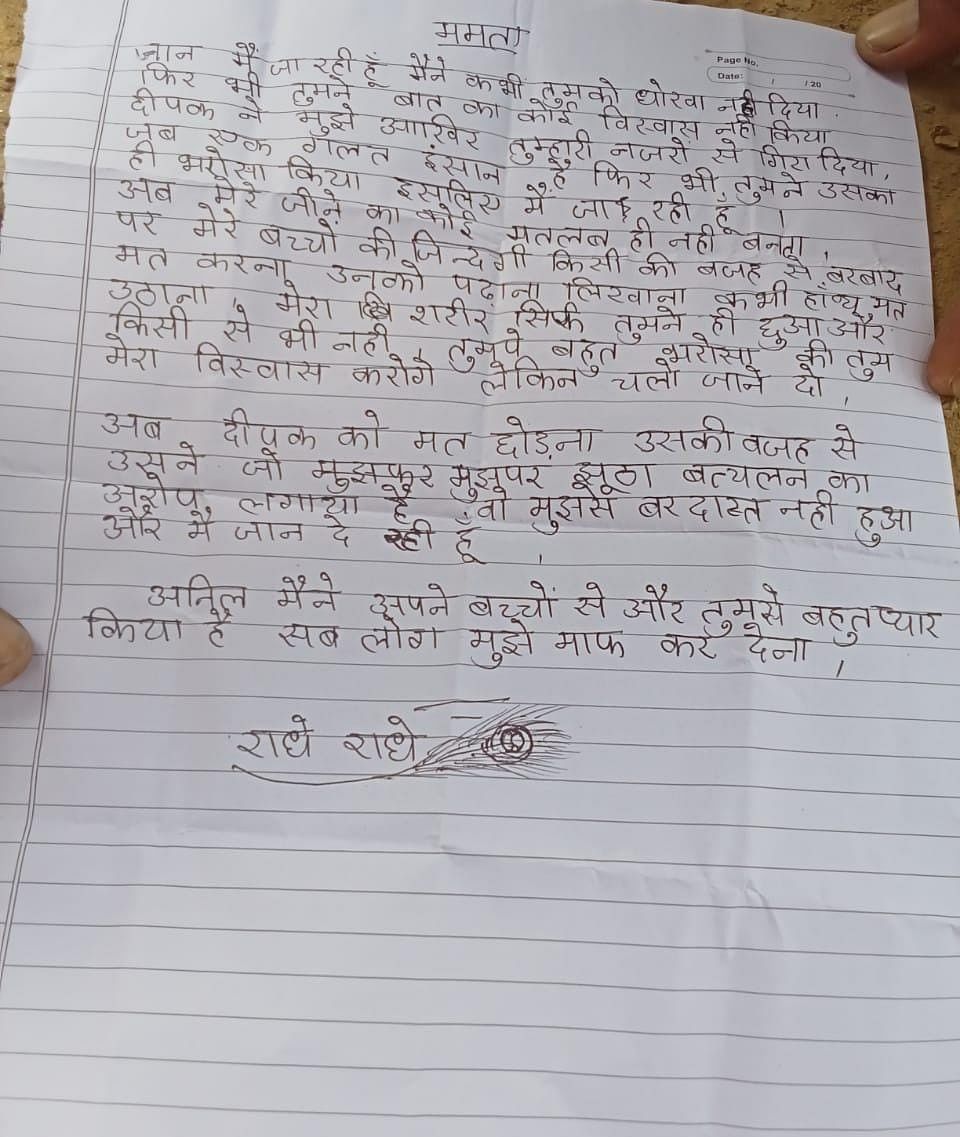 ममता
Page No.
Date: / / 20
जान मैं जा रही हूँ मैंने कभी तुमको धोखा नही दिया.
फिर भी तुमने बात का कोई विस्वास नही किया
दीपक ने मुझे आखिर तुम्हारी नजरों से गिरा दिया,
जब एक गलत इंसान है फिर भी तुमने उसका
ही भरोसा किया इसलिए में जा रही हूँ ।
अब मेरे जीने का कोई मतलब ही नही बनता,
पर मेरे बच्चों की जिन्दगी किसी की बजह से बरबाद
मत करना उनको पढ़ाना लिखवाना कभी हाँथ मत
उठाना, मेरा शरीर सिर्फ तुमने ही छुआ और
किसी से भी नही, तुमपे बहुत भरोसा की तुम
मेरा विस्वास करोगे लेकिन चलो जाने दो,
अब दीपक को मत छोड़ना उसकी वजह से
उसने जो मुझपर मुझपर झूठा बत्चलन का
आरोप लगाया है, वो मुझसे बरदास्त नही हुआ
और मै जान दे रही हूँ ,
अनिल मैंने अपने बच्चों से और तुमसे बहुत प्यार
किया है सब लोग मुझे माफ कर देना ,
राधे राधे